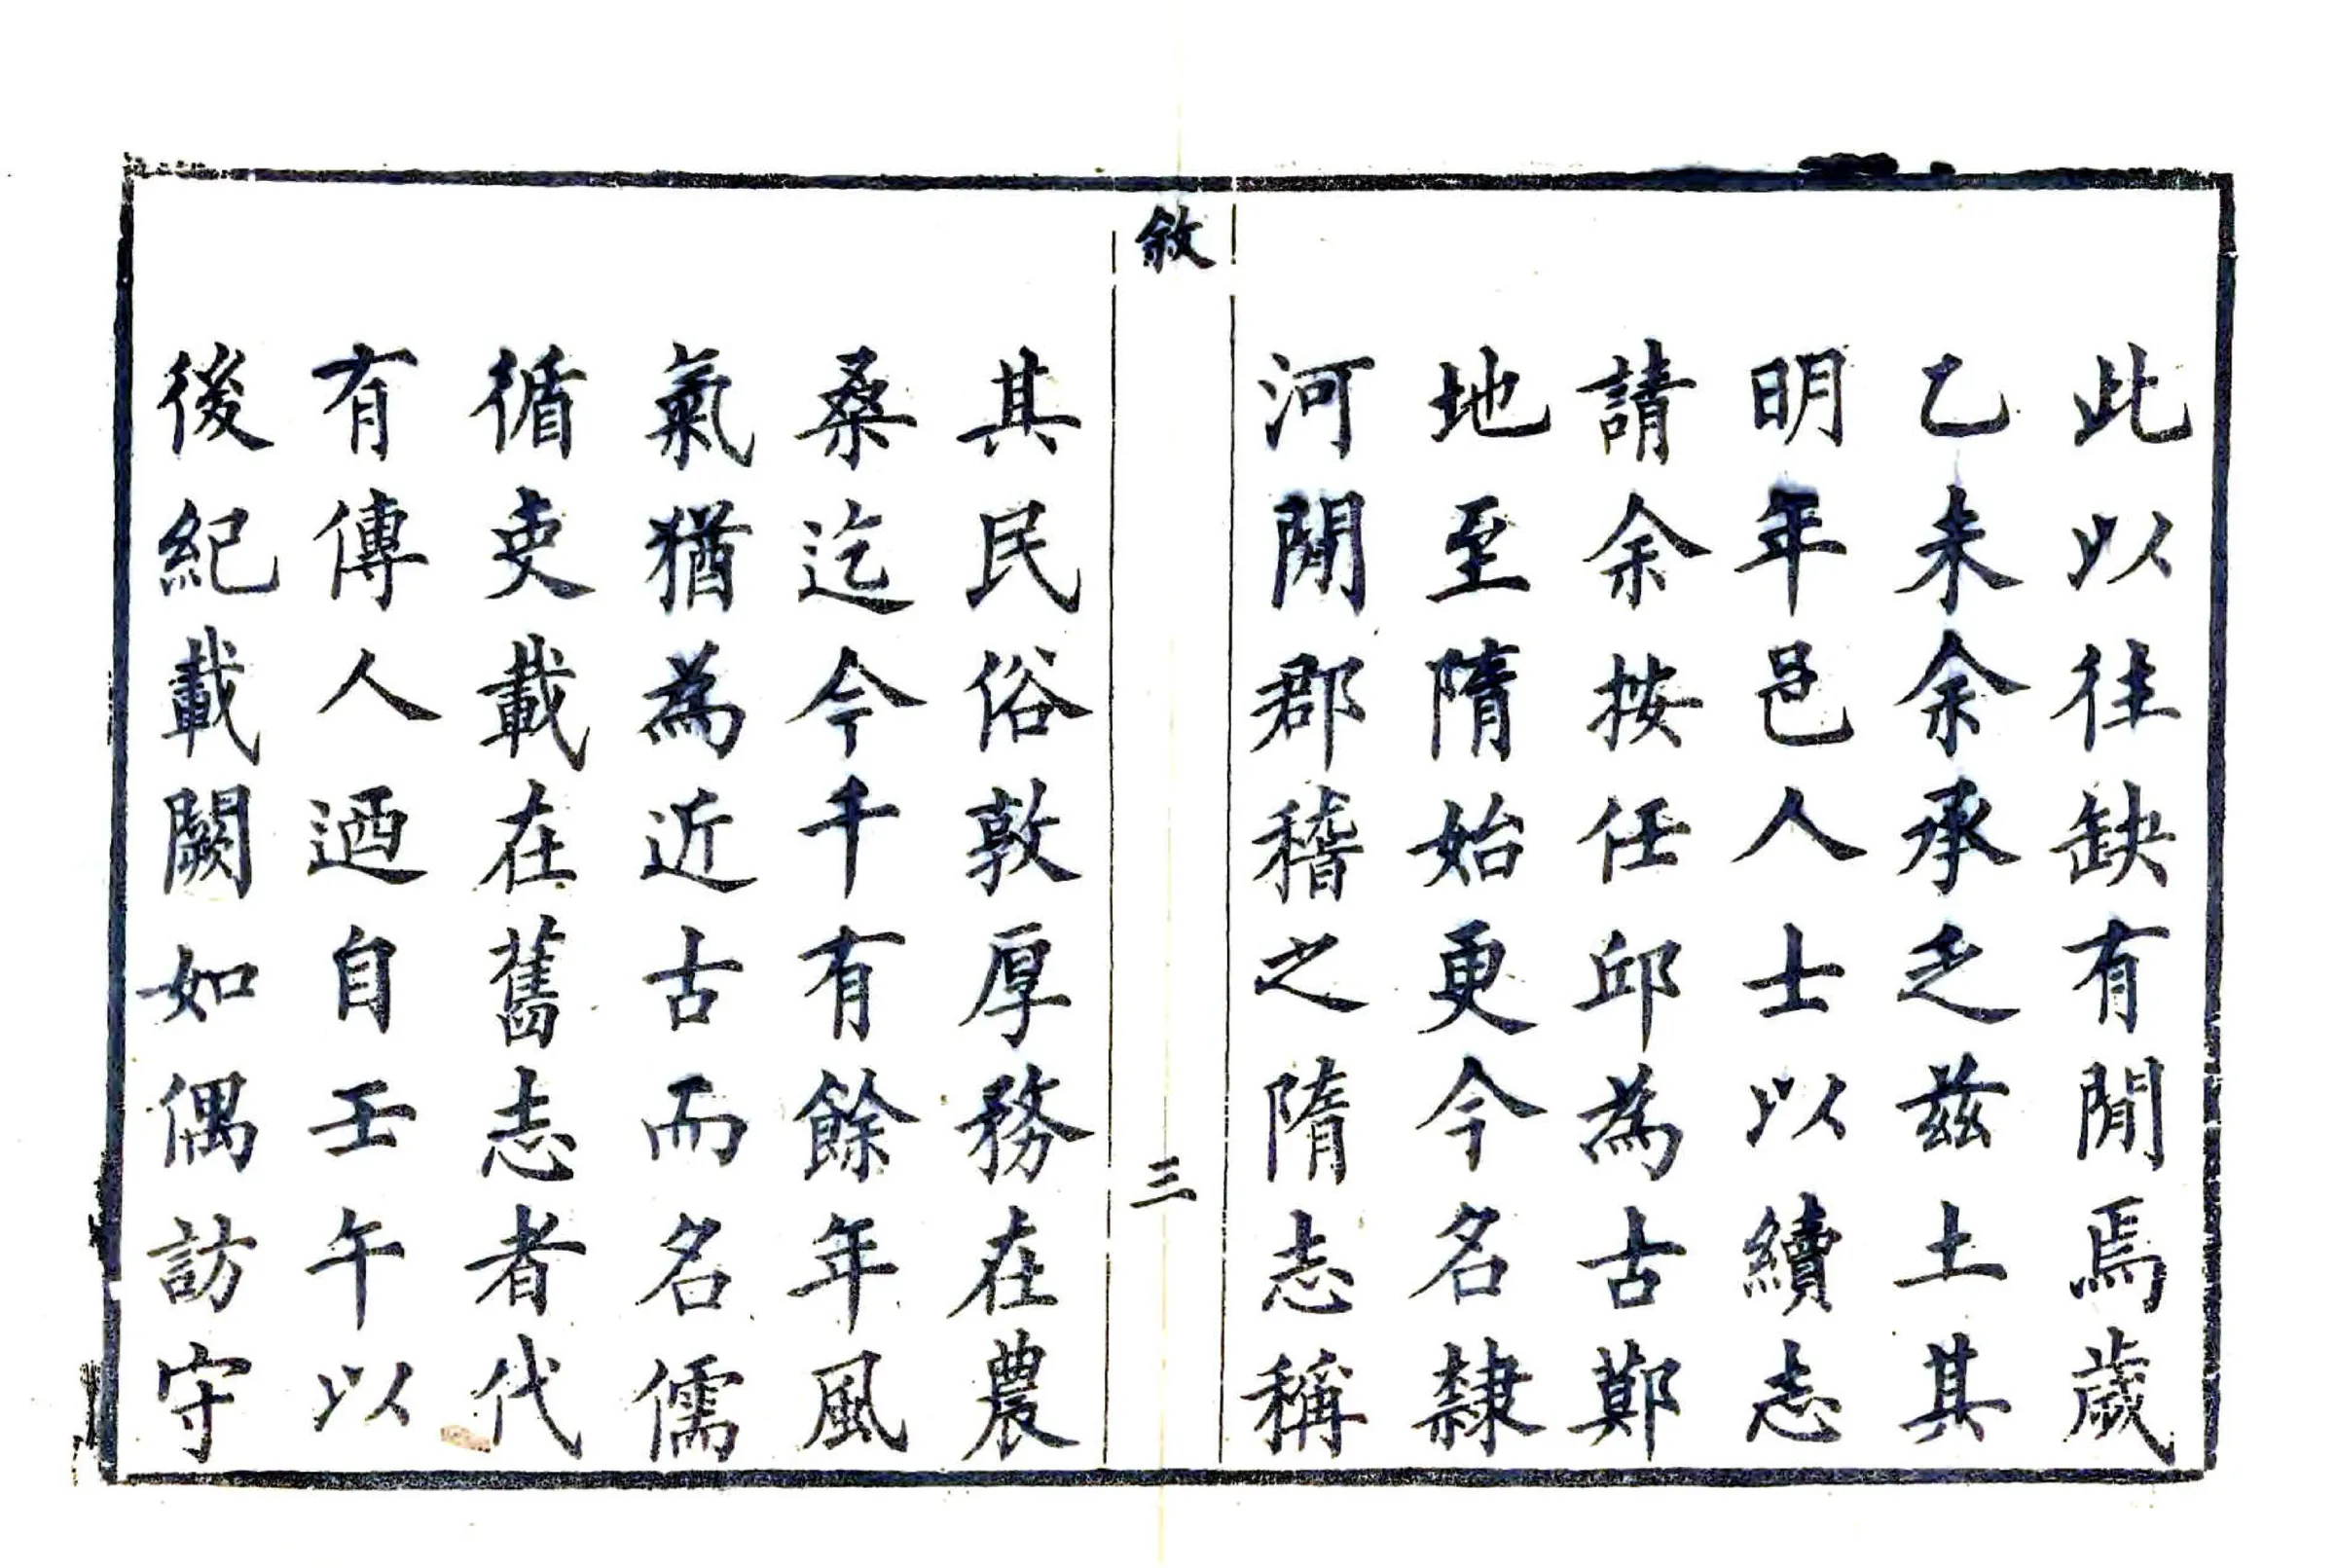 此以往缺有閒焉歲
乙未余承乏茲土其
明年邑人士以續志
請余按任邱為古鄚
地至隋始更今名隸
河閒郡稽之隋志稱
敘
三
其民俗敦厚務在農
桑迄今千有餘年風
氣猶為近古而名儒
循吏載在舊志者代
有傳人迺自壬午以
後紀載闕如偶訪守